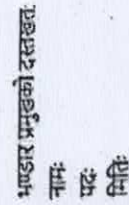 भण्डार प्रमुखको दस्तखतः
नामः
पदः
मितिः